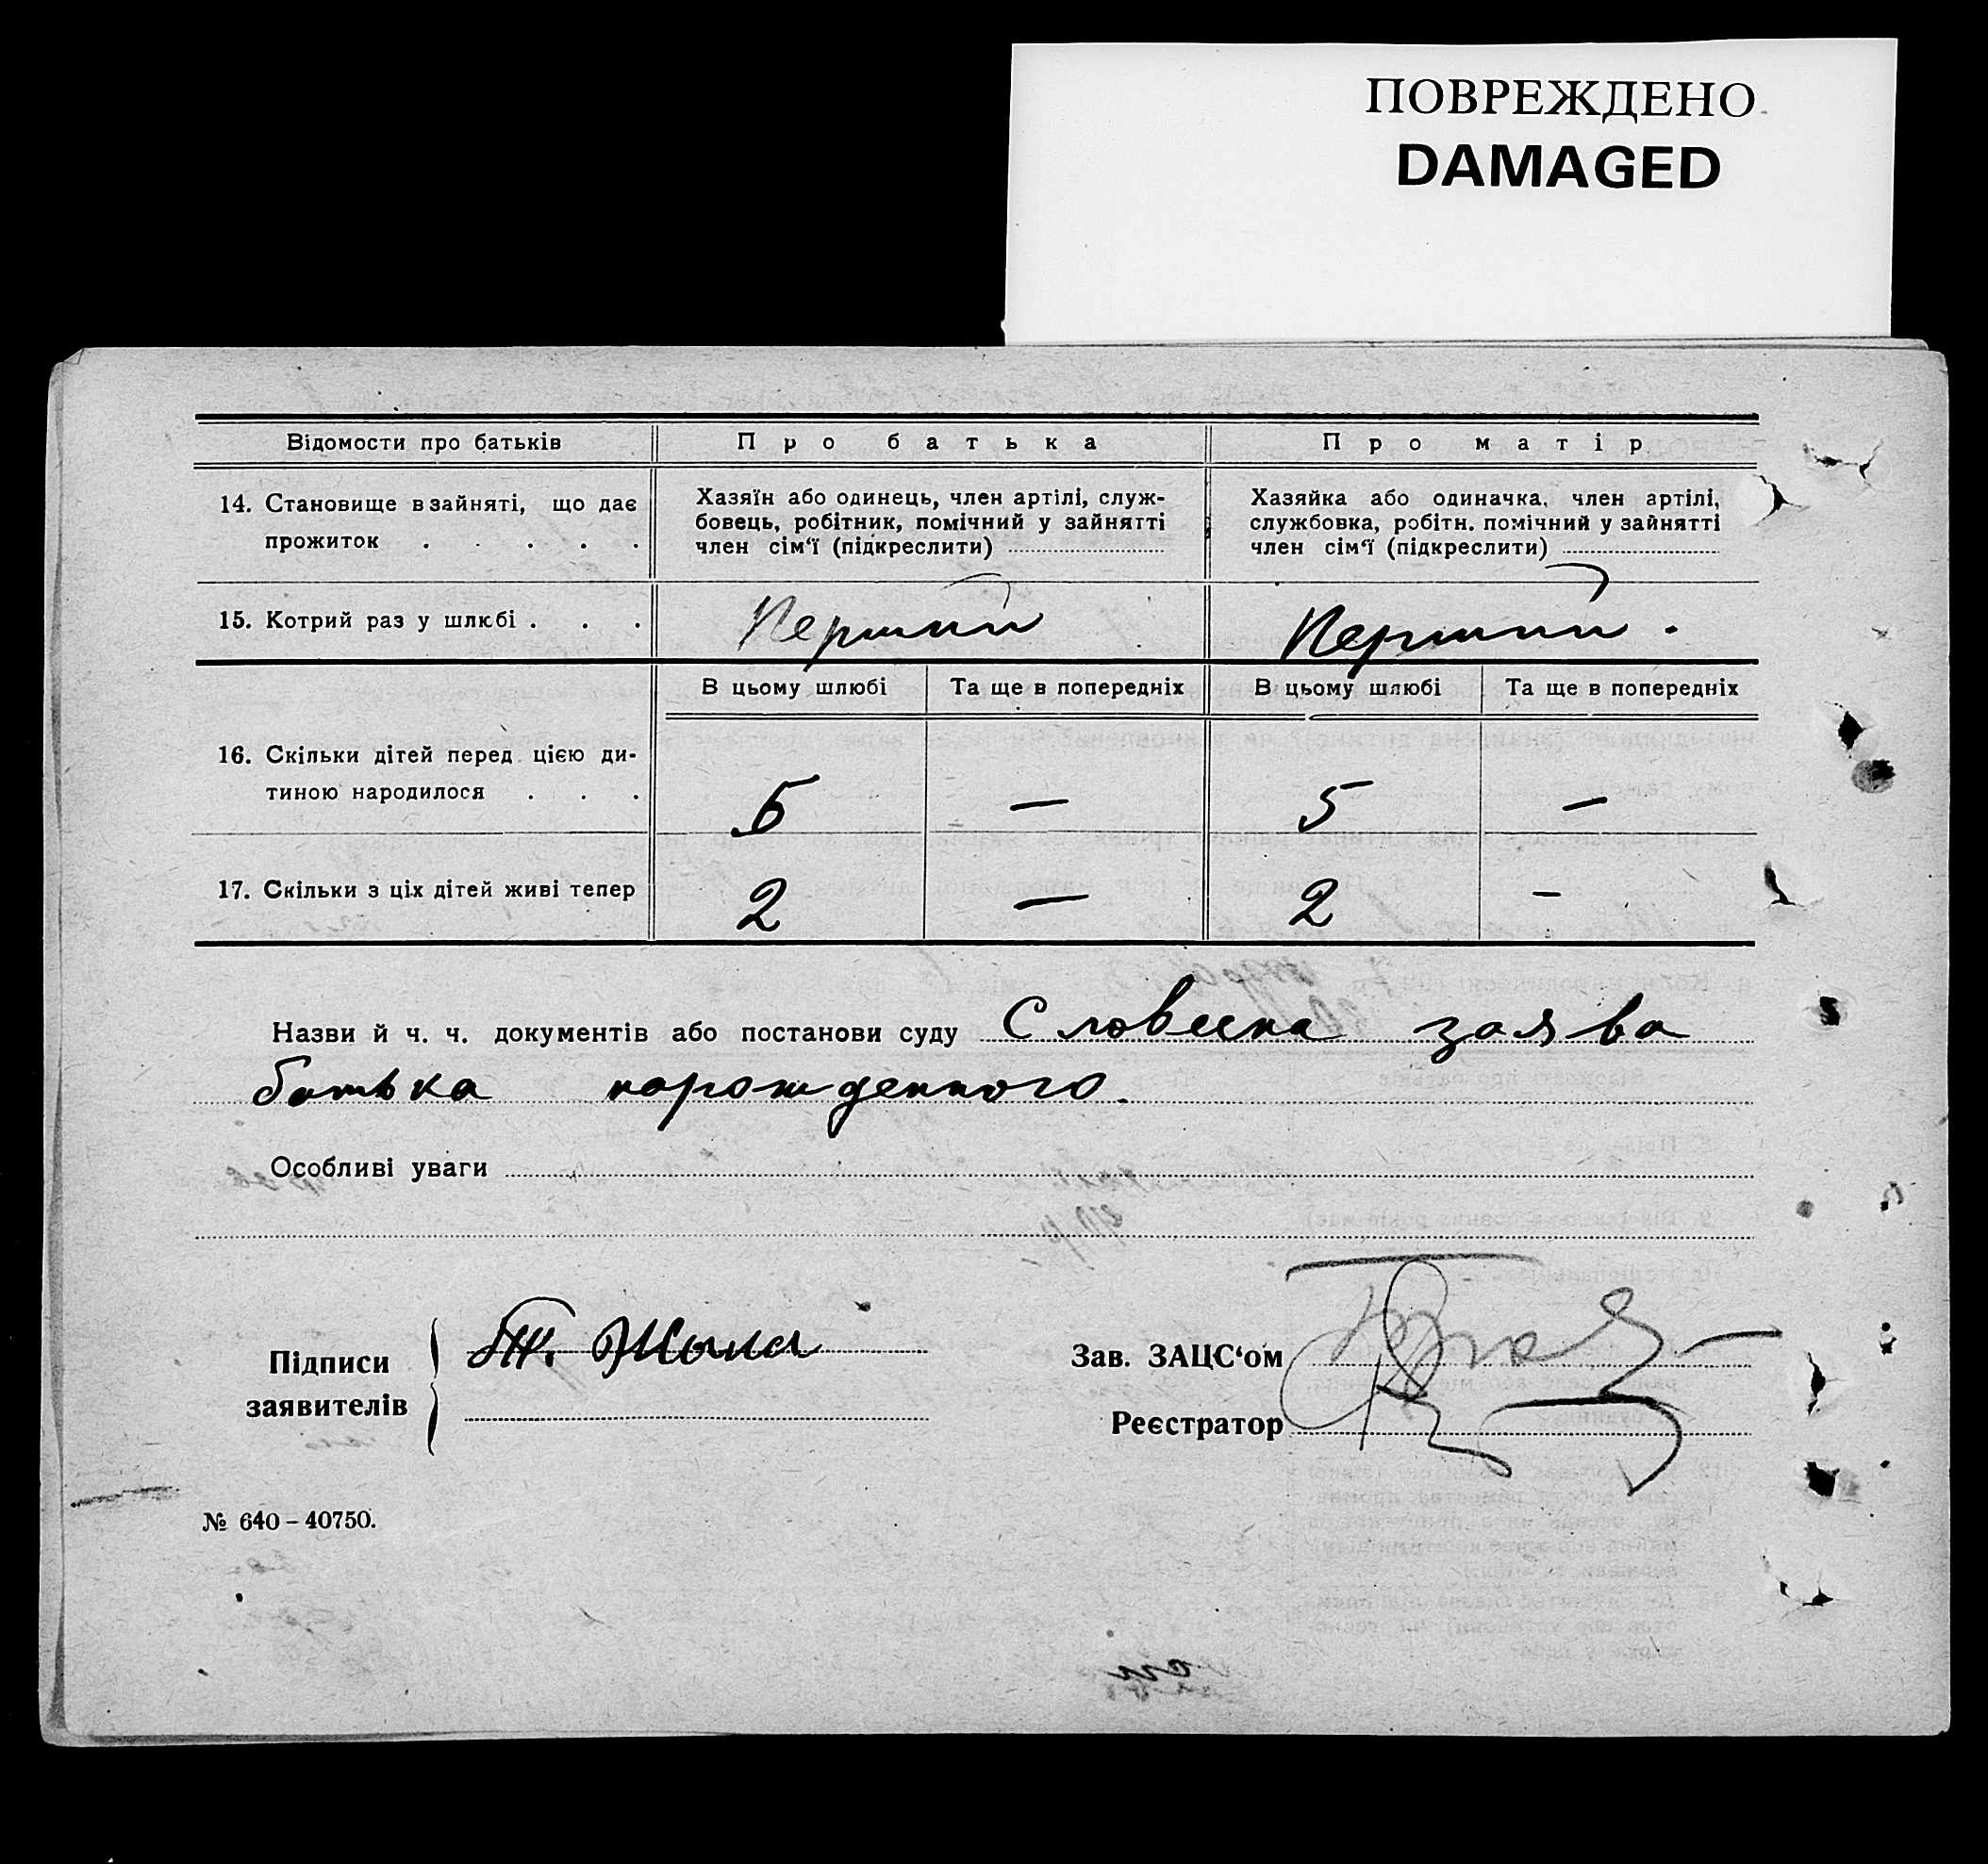 ПОВРЕЖДЕНО
DAMAGED
Відомости про батьків
Про батька
Про матір
14. Становище в зайняті, що дає
прожиток . . . . .
Хазяїн або одинець, член артілі, служ-
бовець, робітник, помічний у зайнятті
член сім‘ї (підкреслити)
Хазяйка або одиначка, член артілі,
службовка, робітн. помічний у зайнятті
член сім‘ї (підкреслити)
15. Котрий раз у шлюбі . . .
Перший
Перший.
В цьому шлюбі
Та ще в попередніх
В цьому шлюбі
Та ще в попередніх
16. Скільки дітей перед цією ди-
тиною народилося . . .
5
—
5
—
17. Скільки з ціх дітей живі тепер
2
—
2
—
Назви й ч. ч. документів або постанови суду Словесна заява
батька нарожденного.
Особливі уваги
Підписи
заявителів
Зав. ЗАЦС‘ом
Реєстратор
№ 640 – 40750.